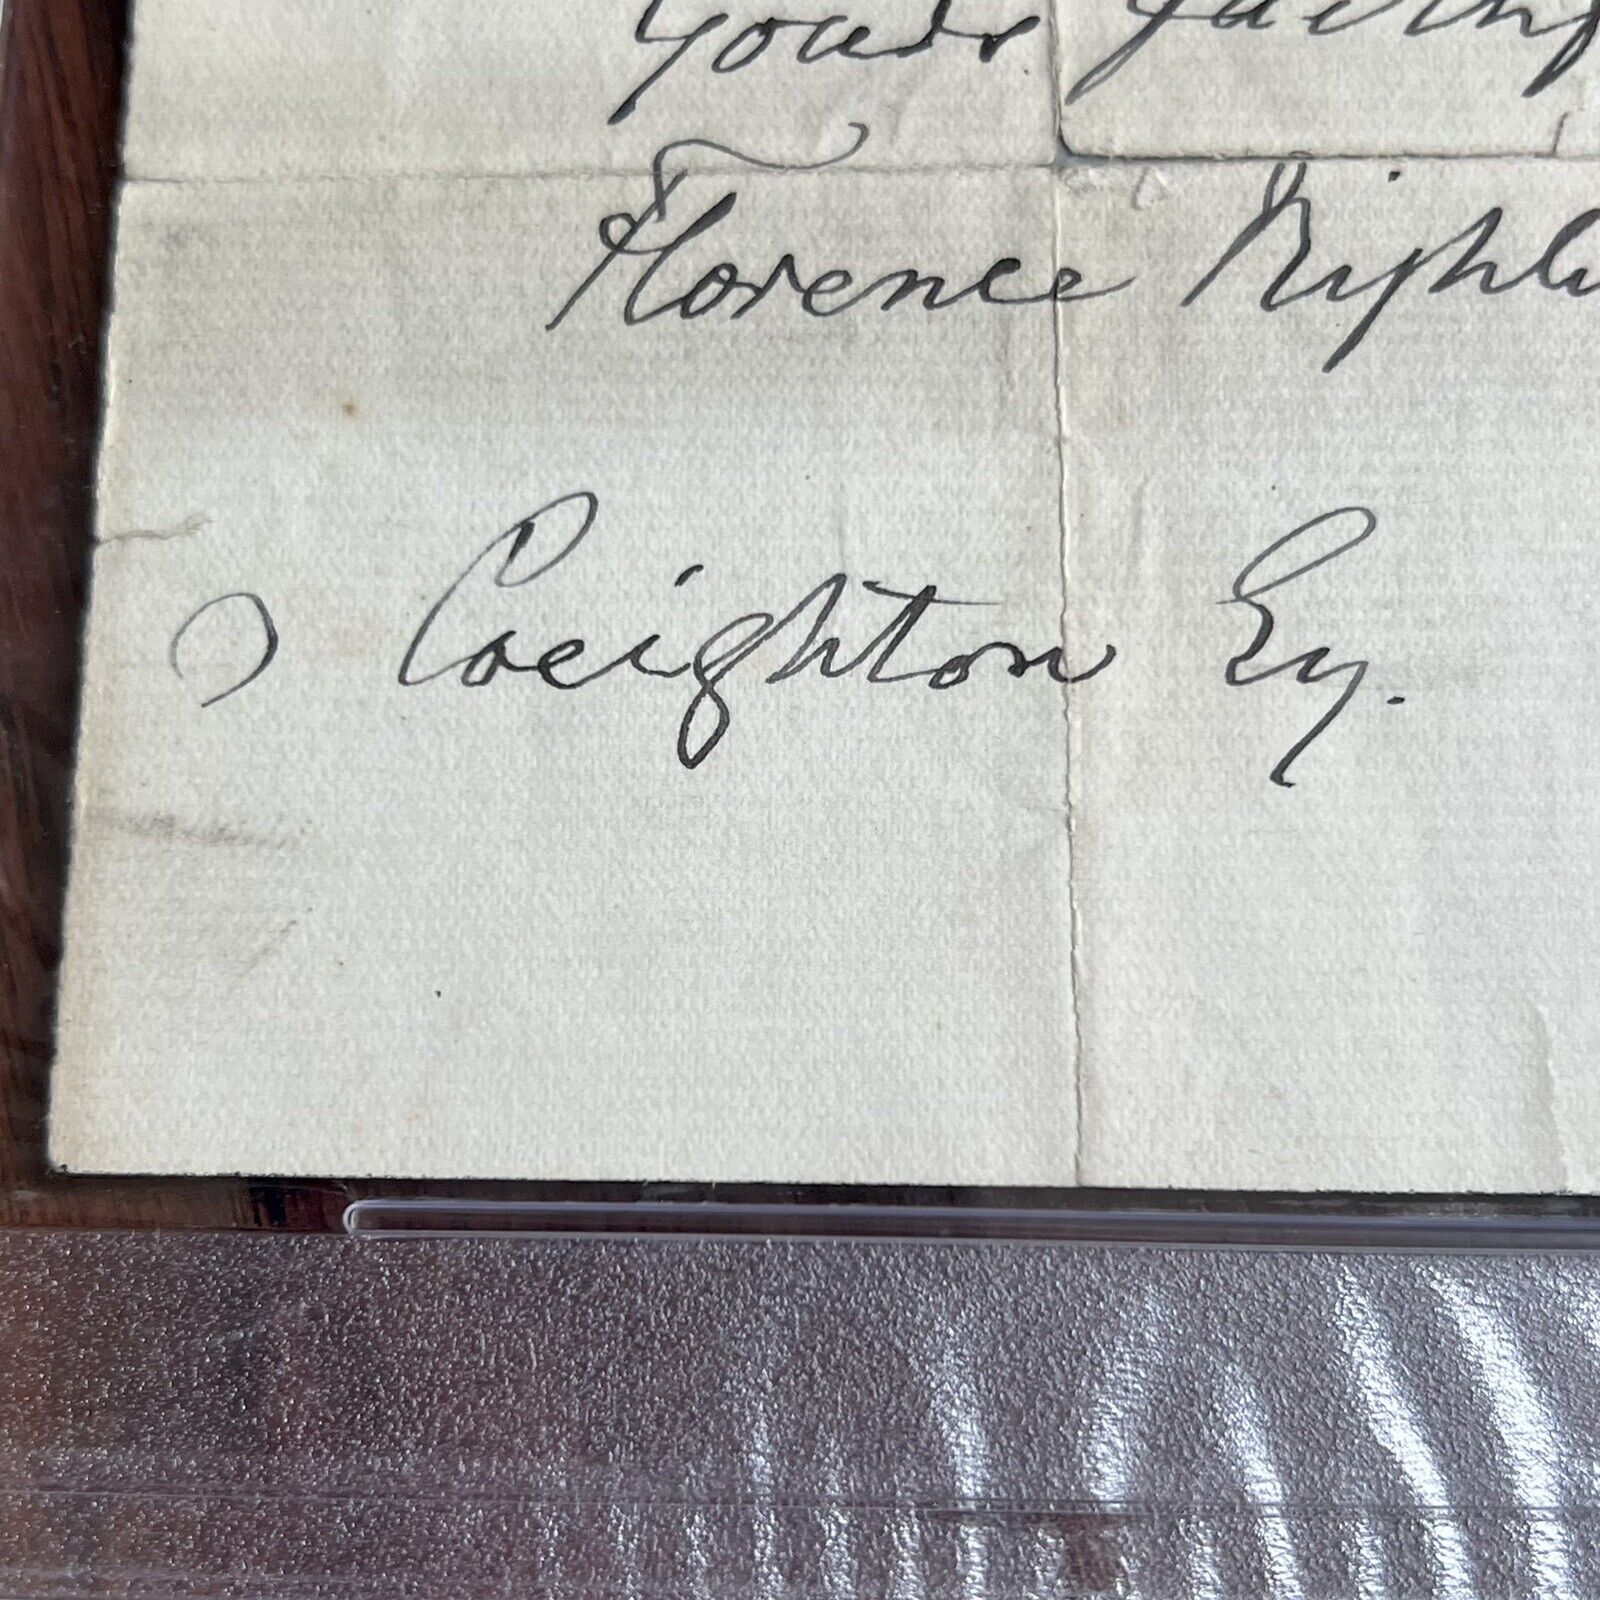 Yours faithf
Florence Nightin
Creighton Esq.